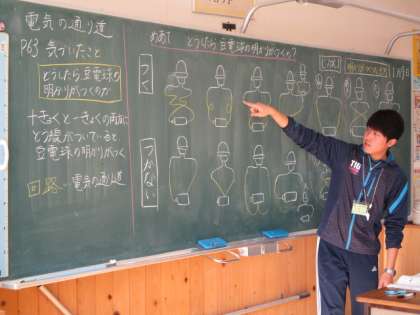 電気の通り道
P63 気づいたこと
どうしたら豆電球の
明かりがつくのか
+きょくと-きょくの両面に
どう線がついていると
豆電球の明かりがつく
回路…電気の通り道
めあて どうしたら豆電球の明かりがつくか?
つく
つかない